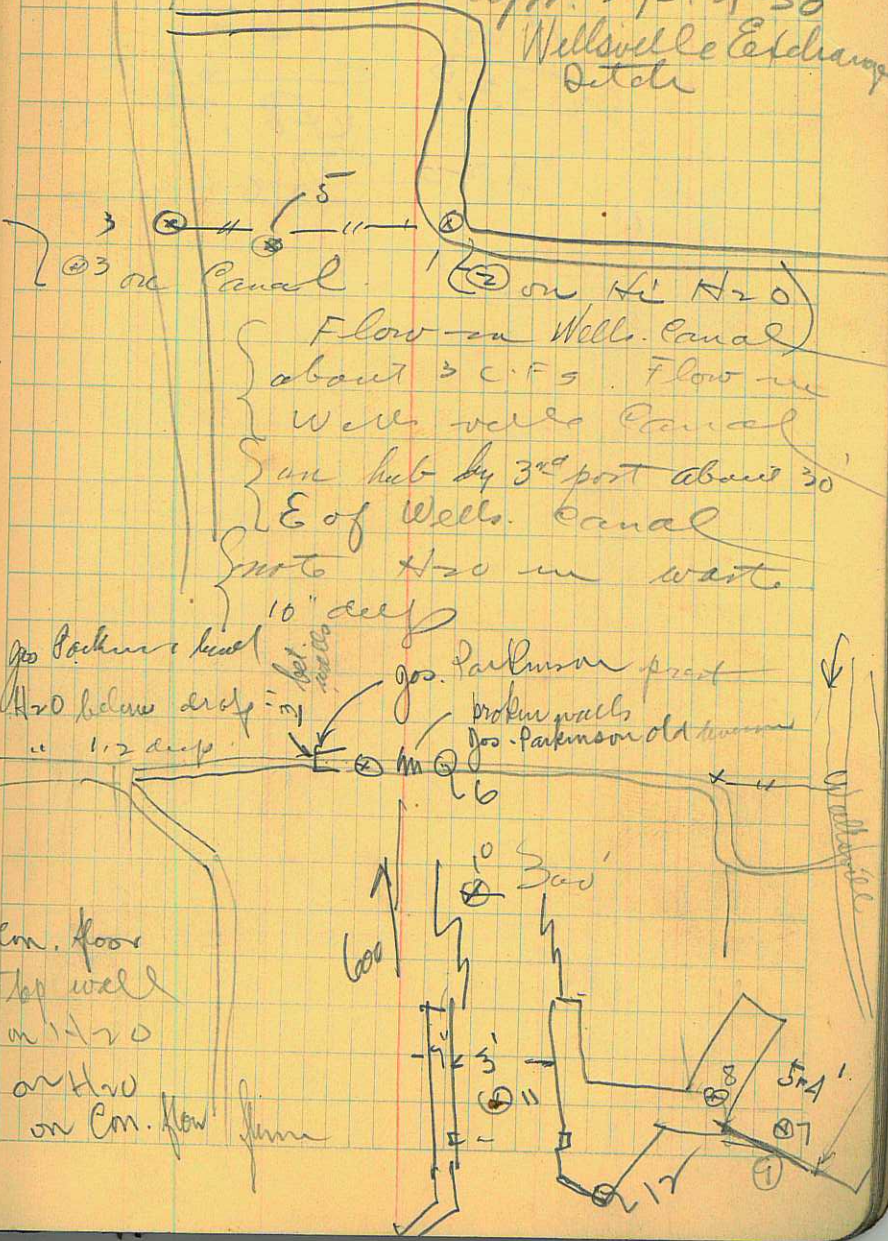 Wellsville Exchange
Ditch
5
3
3 on Canal
1
2 on Hi H2O
Flow in Wells. Canal
about 3 C.F.S. Flow in
Wells ville Canal
on hub by 3rd post about 30'
E of Wells. Canal
note H2O in waste
10" deep
bet. walls
Jos. Parkinson
H2O below drop = 3'
" 1.2 deep
broken walls
Jos. Parkinson old
6
Wellsville
10
300'
600
Con. floor
Top well
on H2O
on H2O
on Con. floor flume
3'
11
8
5x4'
7
9
12